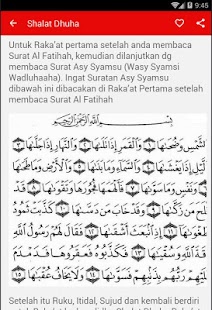 9:45
Shalat Dhuha
Untuk Raka'at pertama setelah anda membaca
Surat Al Fatihah, kemudian dilanjutkan dg
membaca Surat Asy Syamsu (Wasy Syamsi
Wadluhaaha). Ingat Suratan Asy Syamsu
dibawah ini dibacakan di Raka'at Pertama setelah
membaca Surat Al Fatihah
بِسْمِ اللَّهِ الرَّحْمَٰنِ الرَّحِيمِ
وَالشَّمْسِ وَضُحَىٰهَا ١ وَالْقَمَرِ إِذَا تَلَىٰهَا ٢ وَالنَّهَارِ إِذَا جَلَّىٰهَا
٣ وَاللَّيْلِ إِذَا يَغْشَىٰهَا ٤ وَالسَّمَاءِ وَمَا بَنَىٰهَا ٥ وَالْأَرْضِ وَمَا طَحَىٰهَا
٦ وَنَفْسٍ وَمَا سَوَّىٰهَا ٧ فَأَلْهَمَهَا فُجُورَهَا وَتَقْوَىٰهَا ٨ قَدْ أَفْلَحَ
مَن زَكَّىٰهَا ٩ وَقَدْ خَابَ مَن دَسَّىٰهَا ١٠ كَذَّبَتْ ثَمُودُ
بِطَغْوَىٰهَا ١١ إِذِ انبَعَثَ أَشْقَىٰهَا ١٢ فَقَالَ لَهُمْ رَسُولُ اللَّهِ نَاقَةَ اللَّهِ
وَسُقْيَٰهَا ١٣ فَكَذَّبُوهُ فَعَقَرُوهَا فَدَمْدَمَ عَلَيْهِمْ رَبُّهُم
بِذَنبِهِمْ فَسَوَّىٰهَا ١٤ وَلَا يَخَافُ عُقْبَٰهَا ١٥
Setelah itu Ruku, Itidal, Sujud dan kembali berdiri